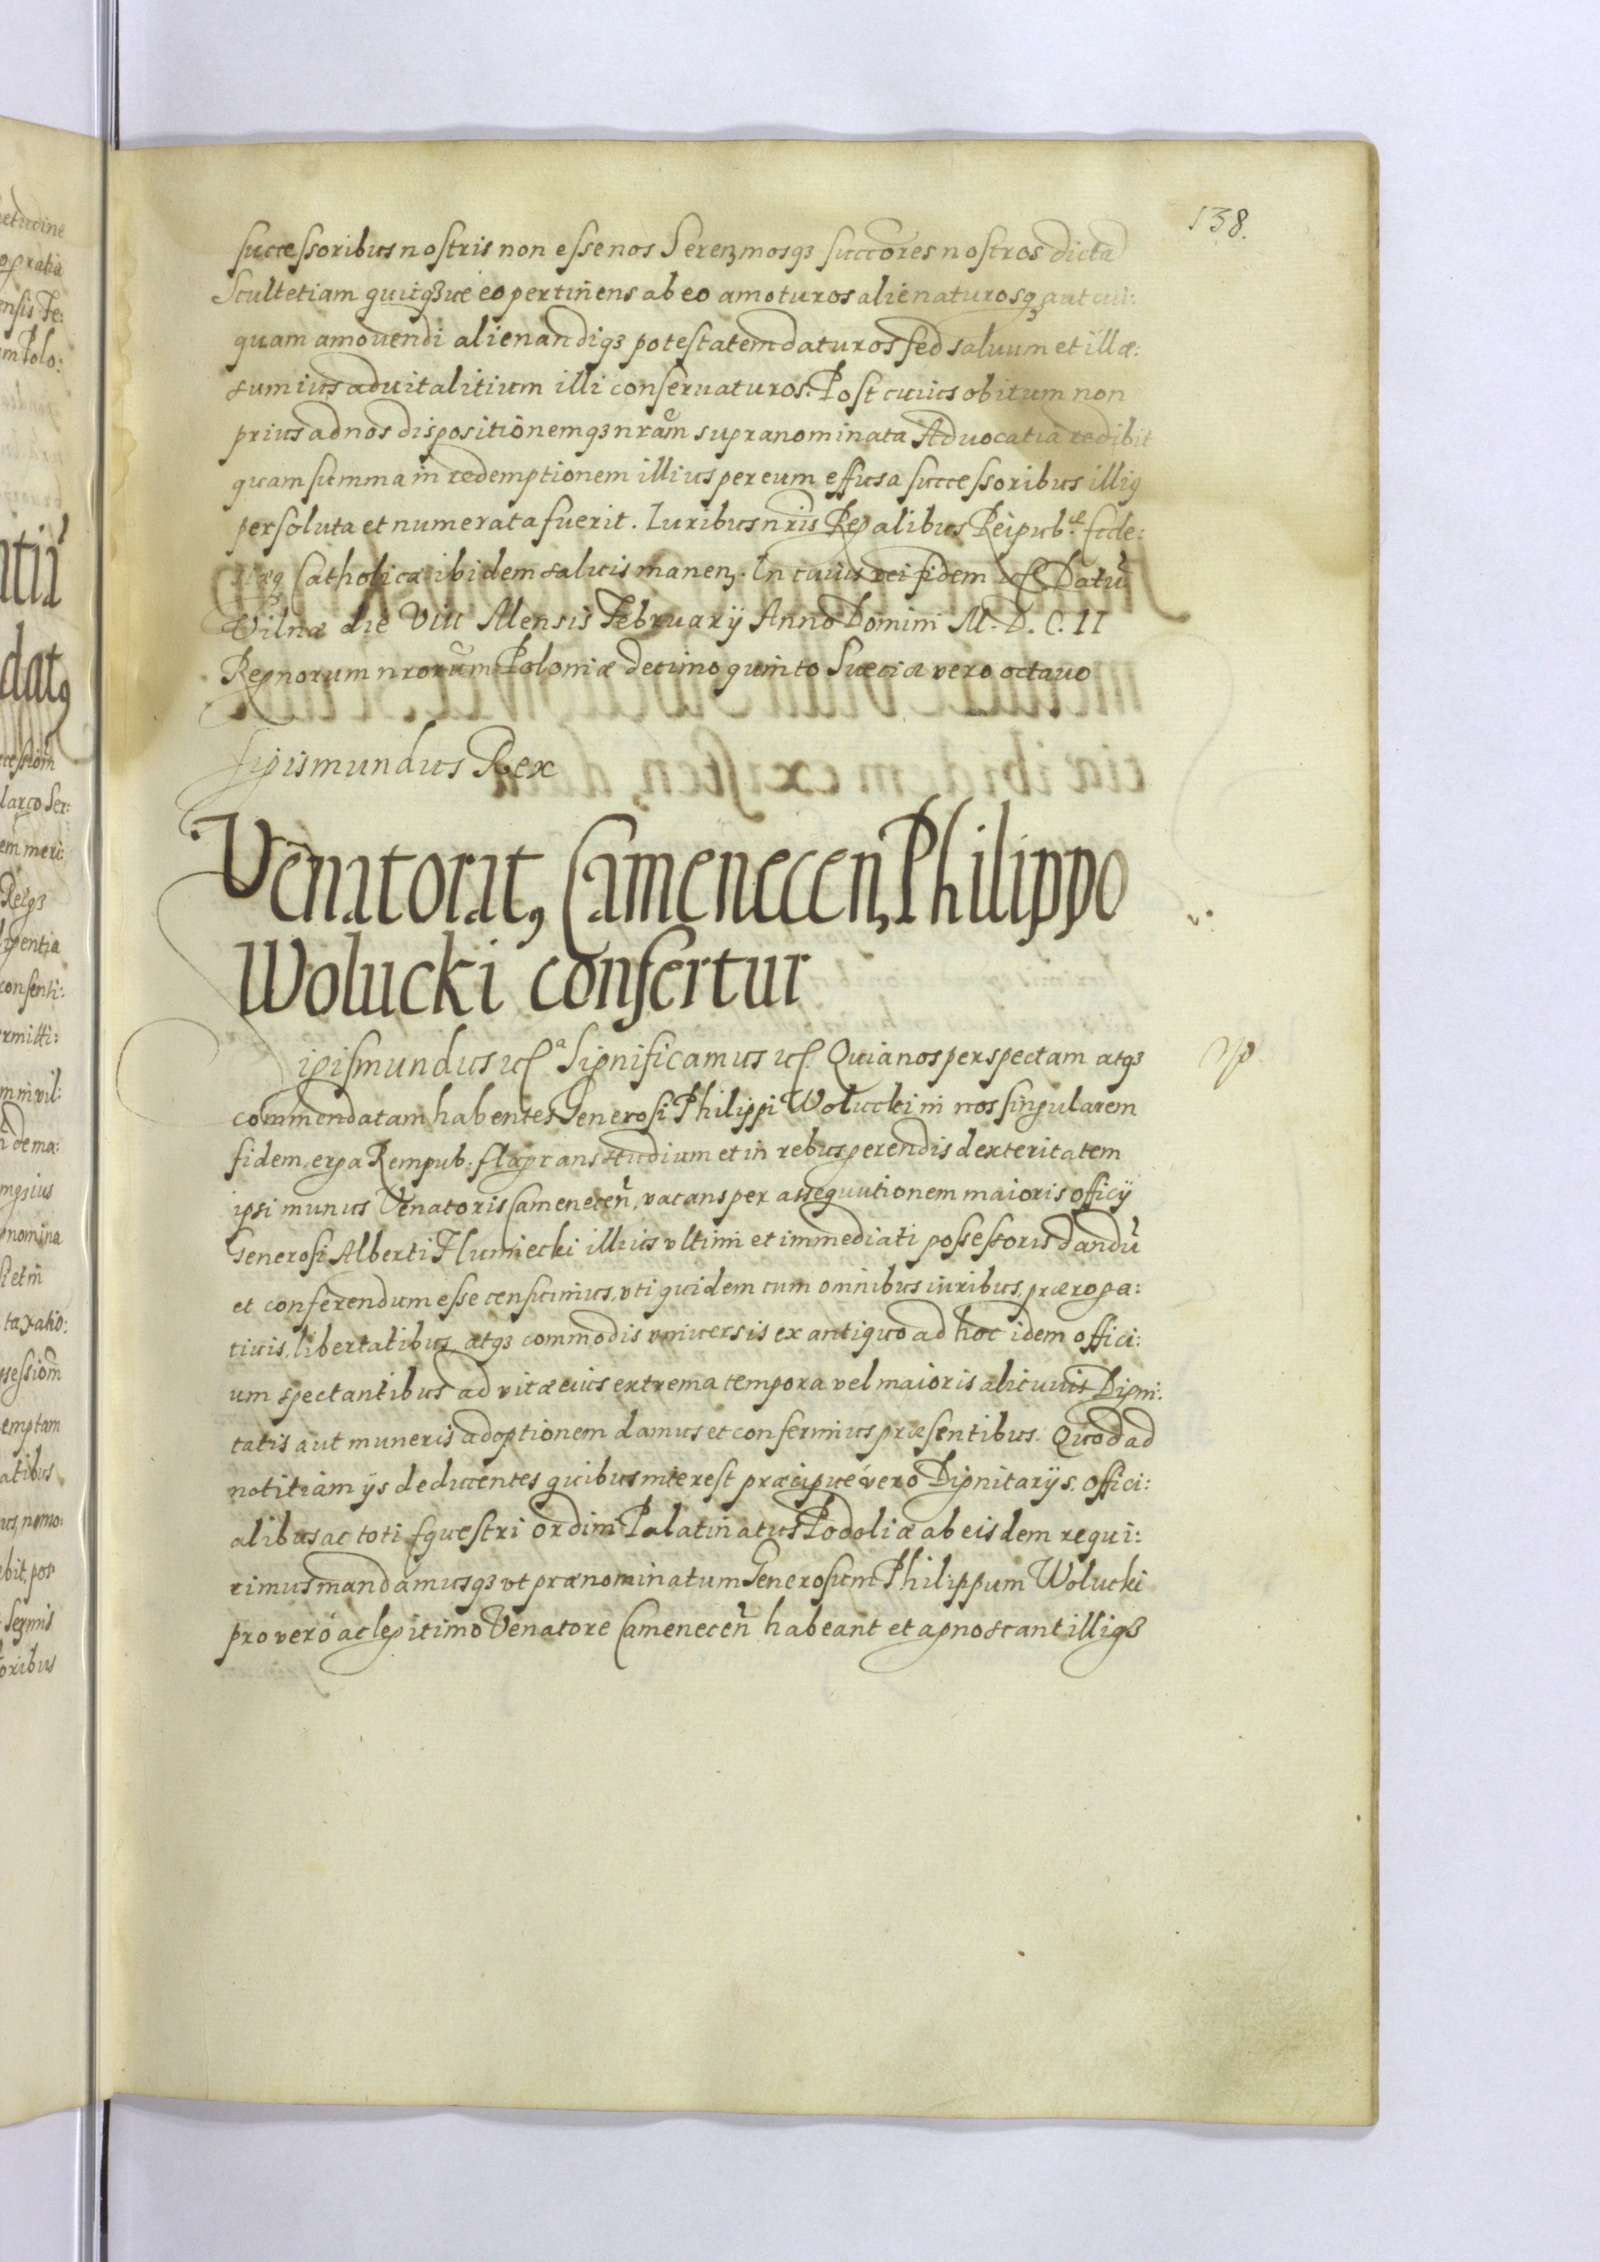 138.
successoribus nostris non esse nos Serenꝫmosqꝫ succores nostros dicta
Scultetiam quicqꝫue eo pertinens ab eo amoturos alienaturosqꝫ aut cui:
quam amouendi alienandiqꝫ potestatem daturos sed saluum et illæ:
sum ius aduitalitium illi conseruaturos. Post cuius obitum non
prius ad nos dispositionemqꝫ nram supranominata Aduocatia redibit
quam summa in redemptionem illius per eum effusa successoribus illiꝰ
persoluta et numerata fuerit. Iuribus nris Regalibus Reipub.æ Eccle:
siæqꝫ Catholicæ ibidem saluis manenꝫ. In cuius rei fidem etc Datū
Vilnæ die VIII Mensis February Anno Domini M. D. C. II
Regnorum nrorum Poloniæ decimo quinto Sueciæ vero octauo
Sigismundus Rex
Venatoratꝰ Camenecenꝫ Philippo
Wolucki confertur
Sigismundus etc.a Significamus etc. Quia nos perspectam atqꝫ
commendatam habentes Generosi Philippi Wolucki in nos singularem
fidem, erga Rempub: flagrans studium et in rebus gerendis dexteritatem
ipsi munus Venatoris Camenecen̄, vacans per assequutionem maioris officÿ
Generosi Alberti Humiecki illius vltimi et immediati possessoris dandū
et conferendum esse censuimus, vti quidem cum omnibus iuribus, præroga:
tiuis, libertatibus, atqꝫ commodis vniuersis ex antiquo ad hoc idem offici:
um spectantibus ad vitæ eius extrema tempora vel maioris alicuius Digni:
tatis aut muneris adoptionem damus et conferimus præsentibus. Quod ad
notitiam ÿs deducentes quibus interest præcipué vero DignitarÿS. Offici:
alibus ac toti Equestri ordini Palatinatus Podoliæ ab eisdem requi:
rimus mandamusqꝫ vt prænominatum Generosum Philippum Wolucki
pro vero ac legitimo Venatore Camenecen̄ habeant et agnoscant illiqꝫ